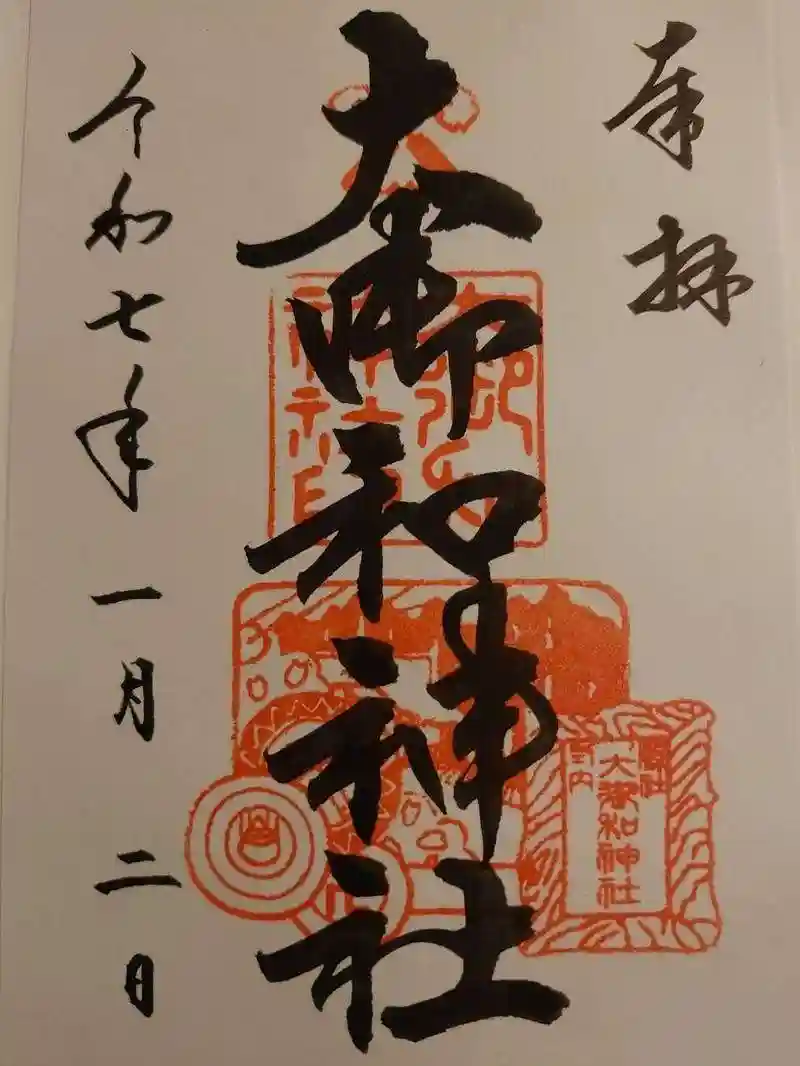 奉拝
大御和神社
令和七年一月二日
大御和神社印
國社
大御和神社